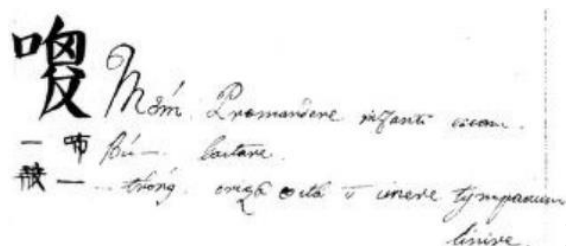 Mớm. Præmandere infanti escam.
咘 一 Bú — lactare.
一 皷 — trống. oriza cocta et cinere tympanum
linire.